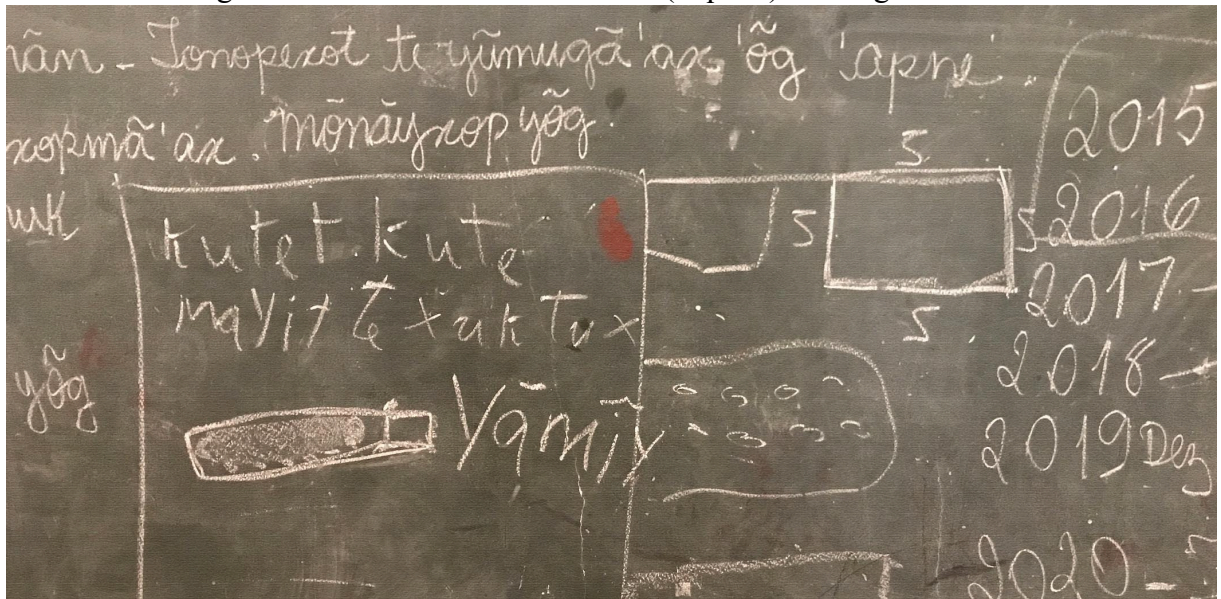 nãn - Tonopexot te yũmũgã'ax 'õg 'apne
xopmã'ax. Mõnãyxop yõg.
uk
yõg
kutet kute
mayit te xuk tux
Yãmĩy
5
5
5
5
2015
2016
2017 -
2018 -
2019 Dez
2020 -